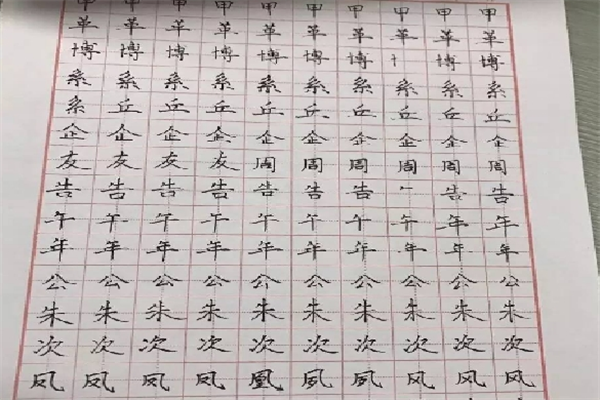 甲 甲 甲 甲 甲 甲 甲 甲 甲
革 革 革 革 革 革 革 革 革
博 博 博 博 博 博 博 博
系 系 系 系 系 系 系 系 系
系 丘 丘 丘 丘 丘 丘 丘 丘
企 企 企 企 企 企 企 企 企
友 友 友 友 周 周 周 周 周 周
告 告 告 告 告 告 告 告 告
午 午 午 午 午 午 午 午 年 年
年 年 年 年 年 年 年 年 年 年
公 公 公 公 公 公 公 公 公 公
朱 朱 朱 朱 朱 朱 朱 朱 朱 朱
次 次 次 次 次 次 次 次 次 次
凤 凤 凤 凤 凰 夙 夙 风 风 风